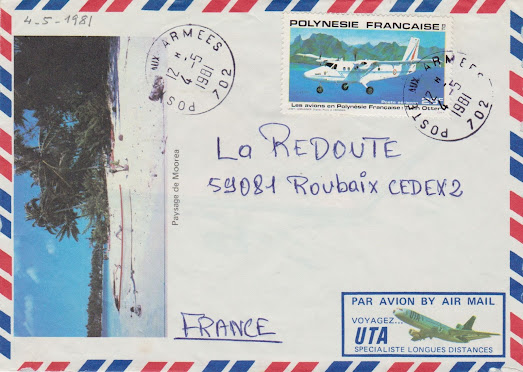 4-5-1981
POLYNESIE FRANCAISE
Poste aérienne
Les avions en Polynésie Française Twin Otter
POSTE AUX ARMEES
12 H
4-5
1981
702
POSTE AUX ARMEES
12 H
4-5
1981
702
Paysage de Moorea
La REDOUTE
59081 Roubaix CEDEX2
FRANCE
PAR AVION BY AIR MAIL
VOYAGEZ...
UTA
SPECIALISTE LONGUES DISTANCES